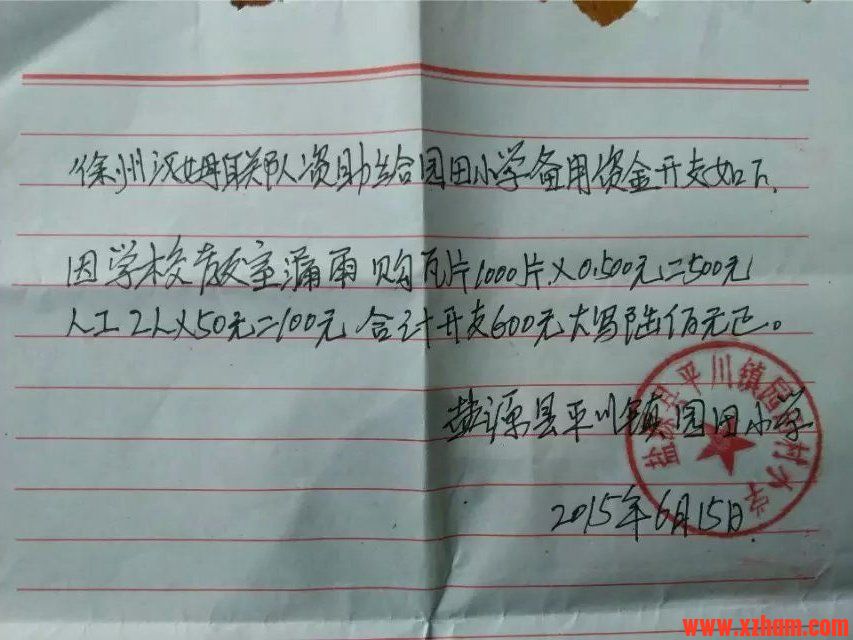 徐州汉姆联队资助给园田小学备用资金开支如下.
因学校教室漏雨 购瓦片1000片×0.500元=500元
人工2人×50元=100元 合计开支600元大写陆佰元正。
盐源县平川镇园田小学
盐源县平川镇园田村小学
2015年6月15日
www.xzham.com